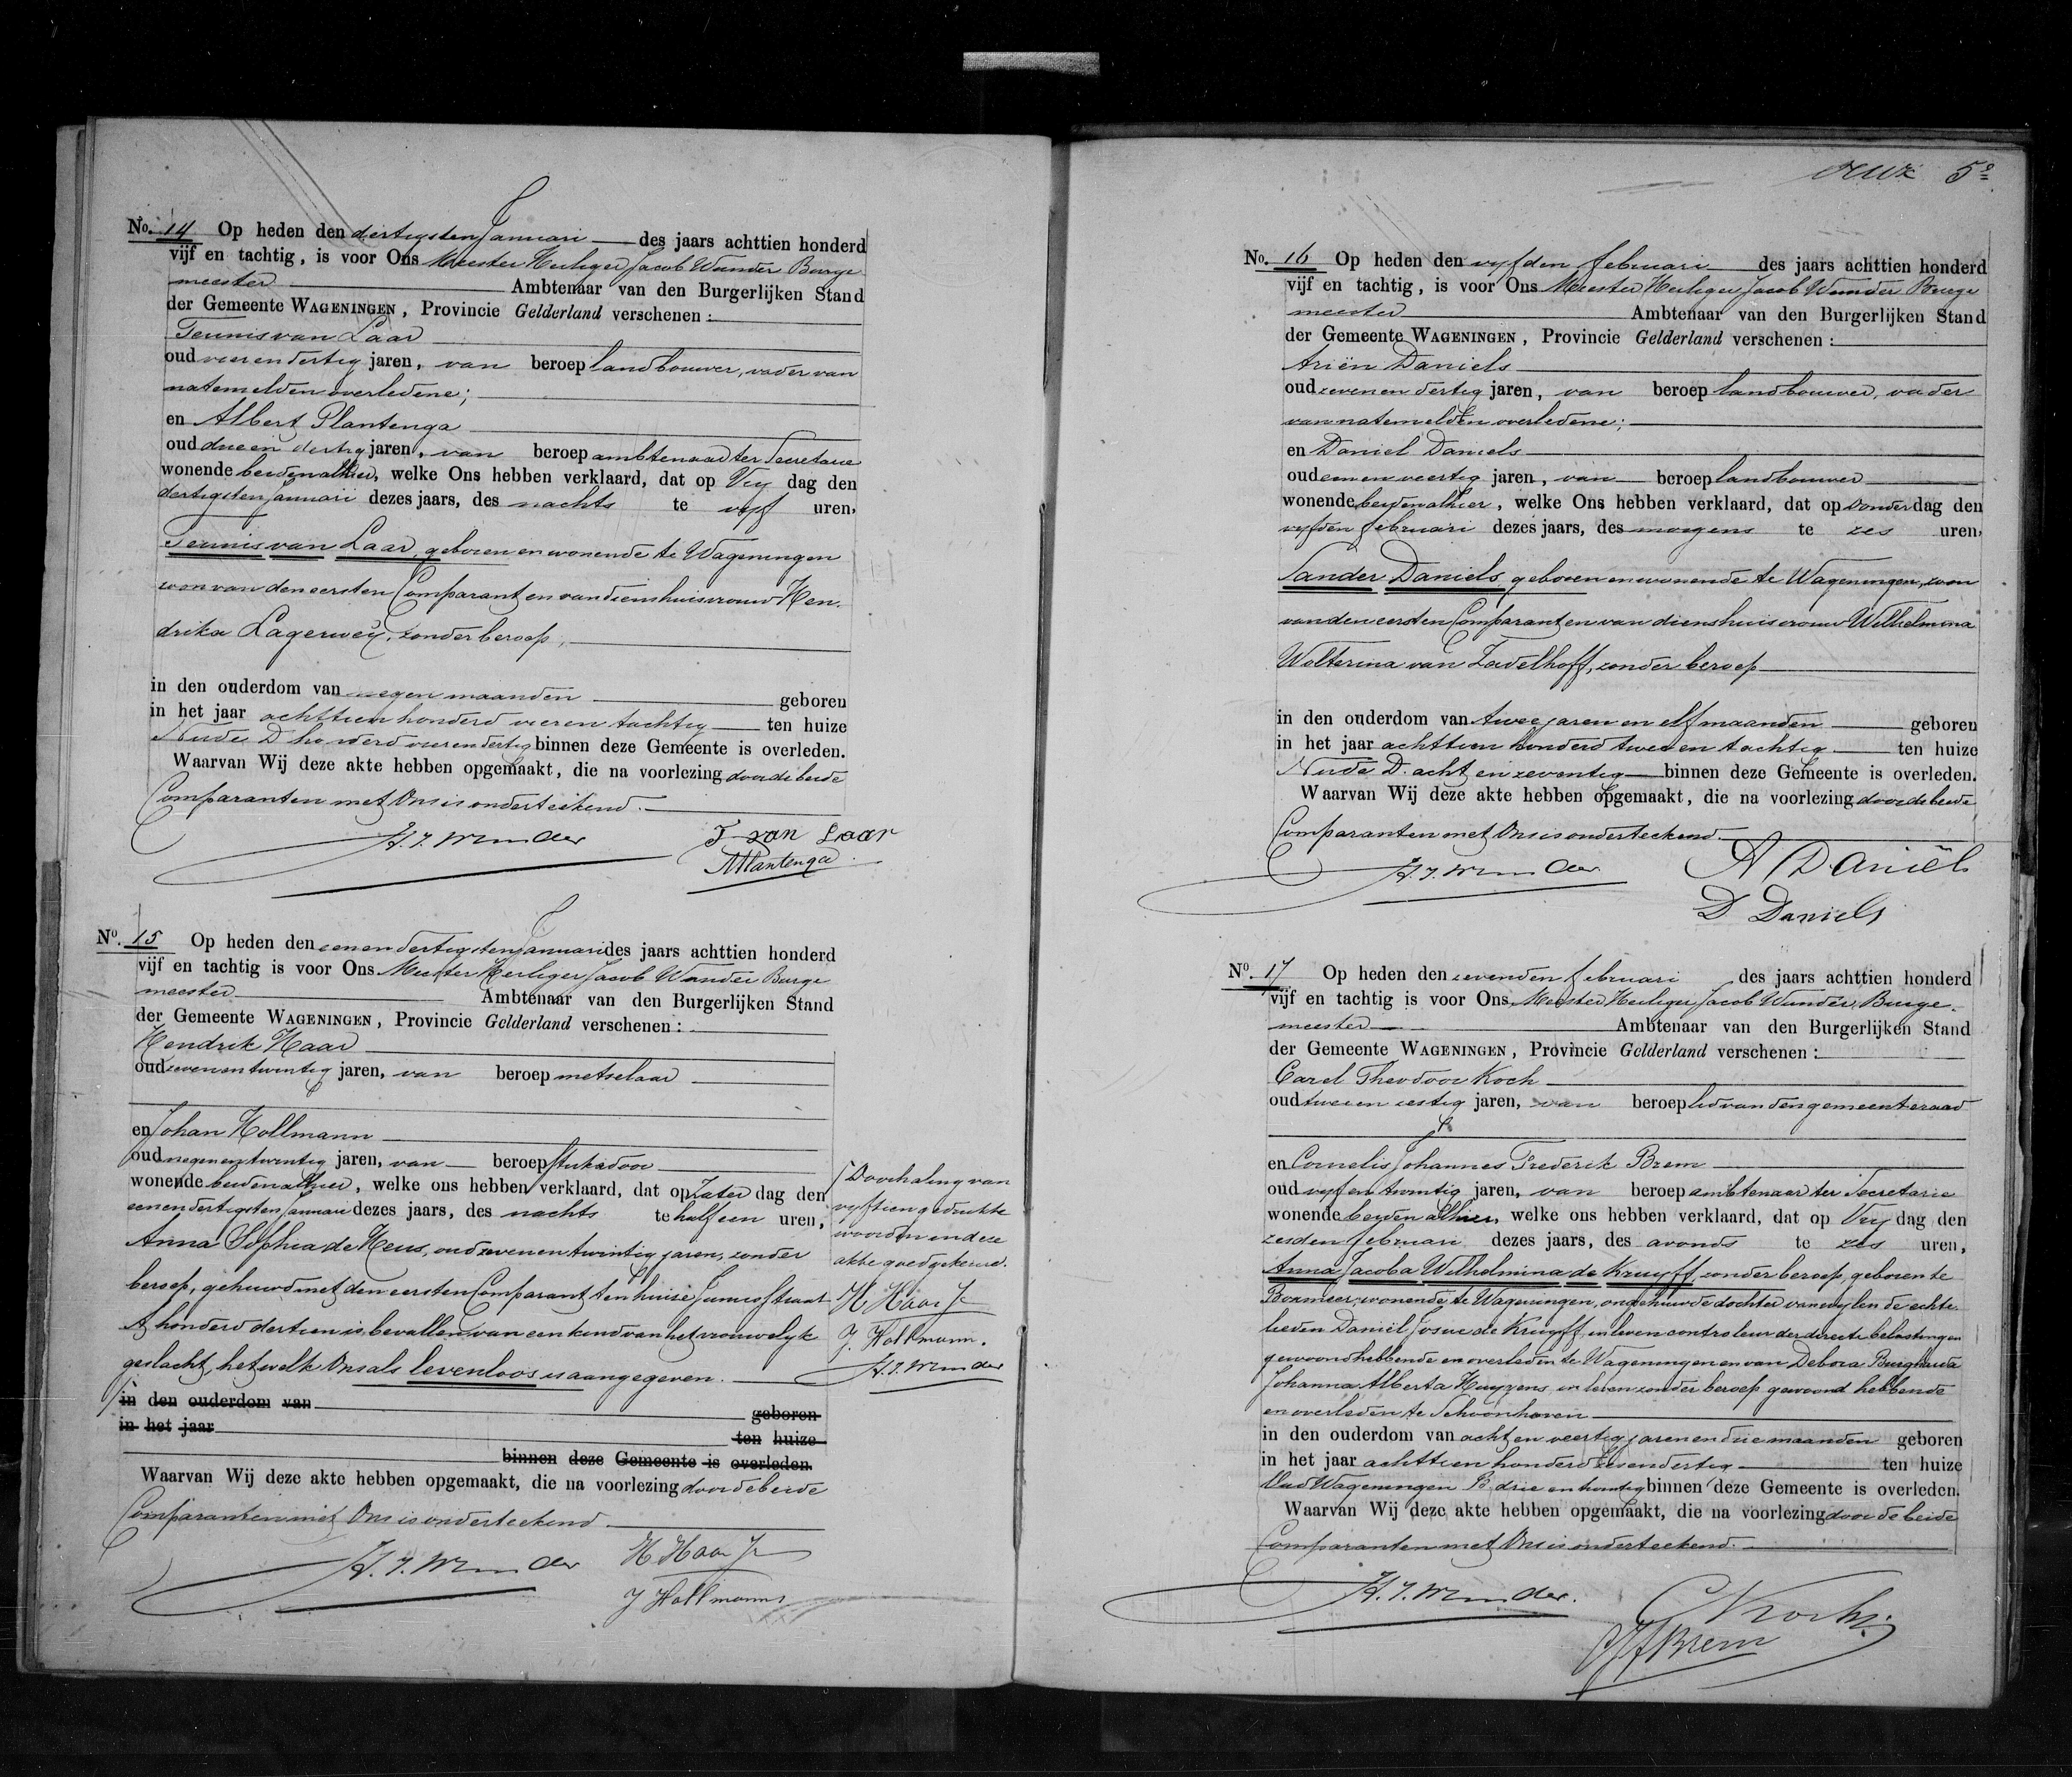 No. 14 Op heden den dertigsten Januari des jaars achttien honderd
vijf en tachtig, is voor Ons Meester Heiliger Jacob Wunder Burge
meester Ambtenaar van den Burgerlijken Stand
der Gemeente WAGENINGEN, Provincie Gelderland verschenen:
Teunis van Laar
oud vier en dertig jaren, van beroep landbouwer, vader van
natemelden overledene;
en Albert Plantenga
oud drie en dertig jaren, van beroep ambtenaar ter Secretarie
wonende beiden alhier, welke Ons hebben verklaard, dat op Vrij dag den
dertigsten Januari dezes jaars, des nachts te vijf uren,
Teunis van Laar, geboren en wonende te Wageningen
zoon van den eersten Comparant en van diens huisvrouw Hen-
drika Lagerweij, zonder beroep,
in den ouderdom van negen maanden geboren
in het jaar achttien honderd vier en tachtig ten huize
Nude D honderd vier en dertig binnen deze Gemeente is overleden.
Waarvan Wij deze akte hebben opgemaakt, die na voorlezing door de beide
Comparanten met Ons is onderteekend.
H. J. Wunder T van Laar
APlantenga
No. 15 Op heden den een en dertigsten Januari des jaars achttien honderd
vijf en tachtig is voor Ons Meester Heiliger Jacob Wunder Burge
meester Ambtenaar van den Burgerlijken Stand
der Gemeente WAGENINGEN, Provincie Gelderland verschenen:
Hendrik Haar
oud zeven en twintig jaren, van beroep metselaar
en Johan Hollmann
oud negen en twintig jaren, van beroep stukadoor
wonende beiden alhier, welke ons hebben verklaard, dat op Zater dag den
een en dertigsten Januari dezes jaars, des nachts te half een uren,
Anna Sophia de Heus, oud zeven en twintig jaren, zonder
beroep, gehuwd met den eersten Comparant ten huize Junusstraat
A honderd dertien is bevallen van een kind van het vrouwelijk
geslacht, hetwelk Ons als levenloos is aangegeven.
in den ouderdom van geboren
in het jaar ten huize
binnen deze Gemeente is overleden.
Waarvan Wij deze akte hebben opgemaakt, die na voorlezing door de beide
Comparanten met Ons is onderteekend
H. J. Wunder H Haar Jr
J Hollmann
Doorhaling van
vijftien gedrukte
woorden in deze
akte goedgekeurd.
H Haar Jr
J. Hollmann.
H. J. Wunder
5e
No. 16 Op heden den vijfden februari des jaars achttien honderd
vijf en tachtig, is voor Ons Meester Heiliger Jacob Wunder Burge
meester Ambtenaar van den Burgerlijken Stand
der Gemeente WAGENINGEN, Provincie Gelderland verschenen:
Ariën Daniels
oud zeven en dertig jaren, van beroep landbouwer, vader
van natemelden overledene;
en Daniel Daniels
oud een en veertig jaren, van beroep landbouwer
wonende beiden alhier, welke Ons hebben verklaard, dat op Donder dag den
vijfden februari dezes jaars, des morgens te zes uren,
Sander Daniels, geboren en wonende te Wageningen, zoon
van den eersten Comparant en van diens huisvrouw Wilhelmina
Wolterina van Zadelhoff, zonder beroep
in den ouderdom van twee jaren en elf maanden geboren
in het jaar achttien honderd twee en tachtig ten huize
Nude D. acht en zeventig binnen deze Gemeente is overleden.
Waarvan Wij deze akte hebben opgemaakt, die na voorlezing door de beide
Comparanten met Ons is onderteekend.
H. J. Wunder A Daniël
D Daniels
No. 17 Op heden den zevenden februari des jaars achttien honderd
vijf en tachtig is voor Ons Meester Heiliger Jacob Wunder, Burge-
meester Ambtenaar van den Burgerlijken Stand
der Gemeente WAGENINGEN, Provincie Gelderland verschenen:
Carel Theodoor Koch
oud twee en zestig jaren, van beroep lid van den gemeenteraad
en Cornelis Johannes Frederik Brem
oud vijf en twintig jaren, van beroep ambtenaar ter Secretarie
wonende beiden alhier, welke ons hebben verklaard, dat op Vrij dag den
zesden februari dezes jaars, des avonds te zes uren,
Anna Jacoba Wilhelmina de Kruyff, zonder beroep, geboren te
Boxmeer, wonende te Wageningen, ongehuwde dochter van wijlen de echte
lieden Daniël Josue de Kruyff, in leven controleur der directe belastingen
gewoond hebbende en overleden te Wageningen en van Debora Burgharda
Johanna Alberta Huygens, in leven zonder beroep gewoond hebbende
en overleden te Schoonhoven
in den ouderdom van acht en veertig jaren en drie maanden geboren
in het jaar achttien honderd zes en dertig ten huize
Oud Wageningen B drie en twintig binnen deze Gemeente is overleden.
Waarvan Wij deze akte hebben opgemaakt, die na voorlezing door de beide
Comparanten met Ons is onderteekend.
H. J. Wunder. CKoch.
CJFBrem